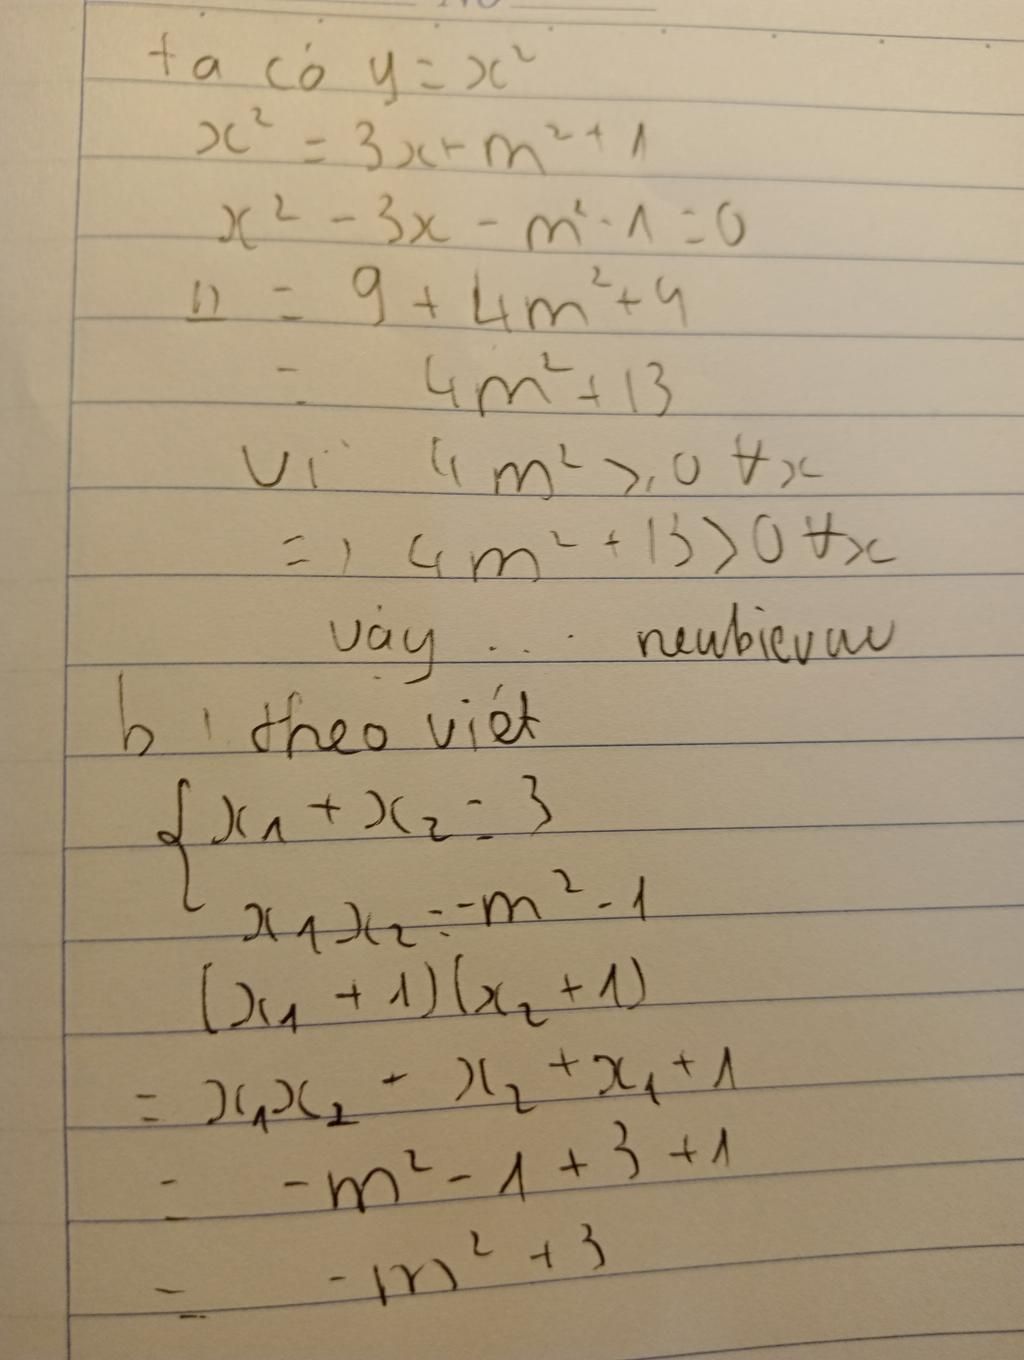 ta có y = x²
x² = 3x + m² + 1
x² - 3x - m² - 1 = 0
= 9 + 4m² + 4
= 4m² + 13
Vì 4m² ≥ 0 ∀x
=> 4m² + 13 > 0 ∀x
vậy ... newbievuw
b, theo viét
{ x₁ + x₂ = 3
x₁x₂ = -m² - 1
(x₁ + 1)(x₂ + 1)
= x₁x₂ + x₂ + x₁ + 1
= -m² - 1 + 3 + 1
= -m² + 3